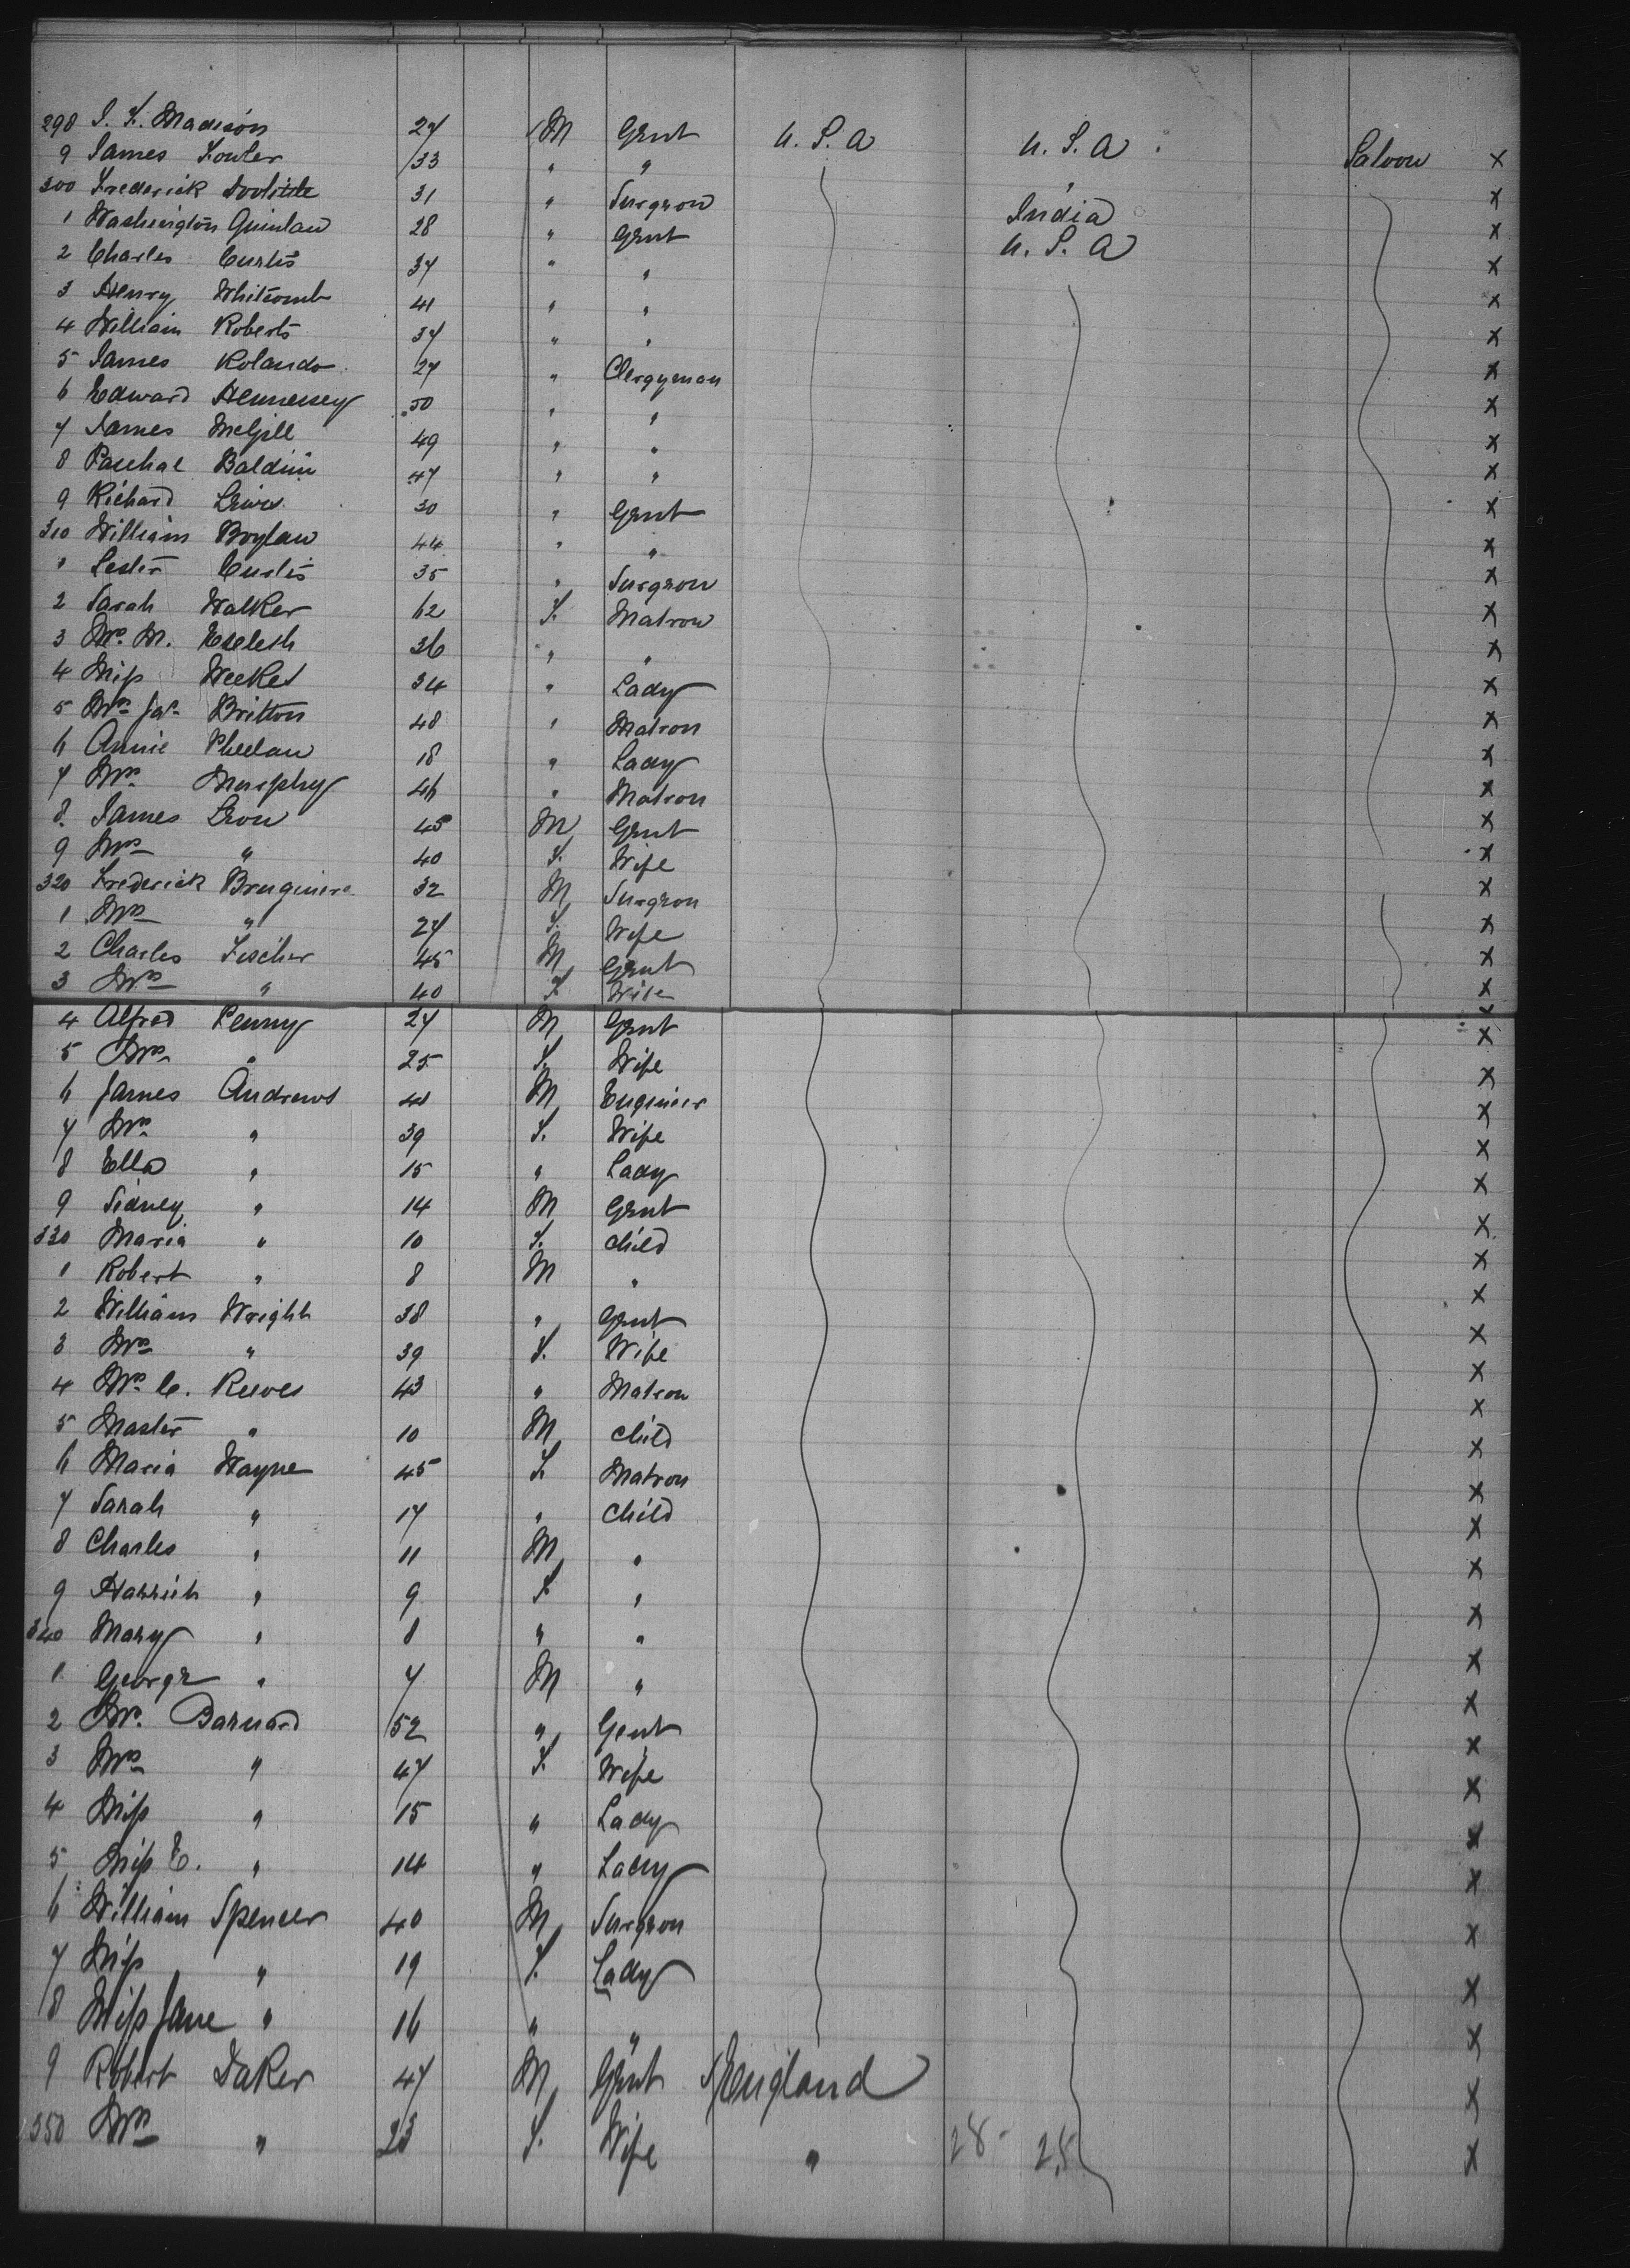 298 J. F. Madison 27 M Gent U.S.A U.S.A Saloon X
9 James Fowler 33 " " X
300 Frederick Doolittle 31 " Surgeon India X
1 Washington Quinlan 28 " Gent U.S.A X
2 Charles Curtis 37 " " X
3 Henry Whitcomb 41 " " X
4 William Roberts 37 " " X
5 James Rolando 27 " Clergyman X
6 Edward Hennessey 50 " " X
7 James McGill 49 " " X
8 Paschal Baldwin 47 " " X
9 Richard Lewis 30 " Gent X
310 William Boylan 44 " " X
1 Lester Curtis 35 " Surgeon X
2 Sarah Walker 62 F. Matron X
3 Mrs M. Eseleth 36 " " X
4 Miss Weekes 34 " Lady X
5 Mrs Jas Britton 48 " Matron X
6 Annie Phelan 18 " Lady X
7 Mrs Murphy 46 " Matron X
8 James Leon 45 M Gent X
9 Mrs " 40 F. Wife X
320 Frederick Bruguiere 32 M Surgeon X
1 Mrs " 27 F. Wife X
2 Charles Fischer 45 M Gent X
3 Mrs " 40 F. Wife X
4 Alfred Penny 27 M Gent X
5 Mrs " 25 F. Wife X
6 James Andrews 40 M Engineer X
7 Mrs " 39 F. Wife X
8 Ella " 15 " Lady X
9 Sidney " 14 M Gent X
330 Maria " 10 F. Child X
1 Robert " 8 M " X
2 William Wright 38 " Gent X
3 Mrs " 39 F. Wife X
4 Mrs C. Reeves 43 " Matron X
5 Master " 10 M Child X
6 Maria Wayne 45 F. Matron X
7 Sarah " 17 " Child X
8 Charles " 11 M " X
9 Harriet " 9 F " X
340 Mary " 8 " " X
1 George " 7 M " X
2 Mr. Barnard 52 " Gent X
3 Mrs " 47 F. Wife X
4 Miss " 15 " Lady X
5 Miss E. " 14 " Lady X
6 William Spencer 40 M Surgeon X
7 Miss " 19 F. Lady X
8 Miss Jane " 16 " " X
9 Robert Daker 47 M Gent England X
350 Mrs " 23 F. Wife " 28 - 25 X